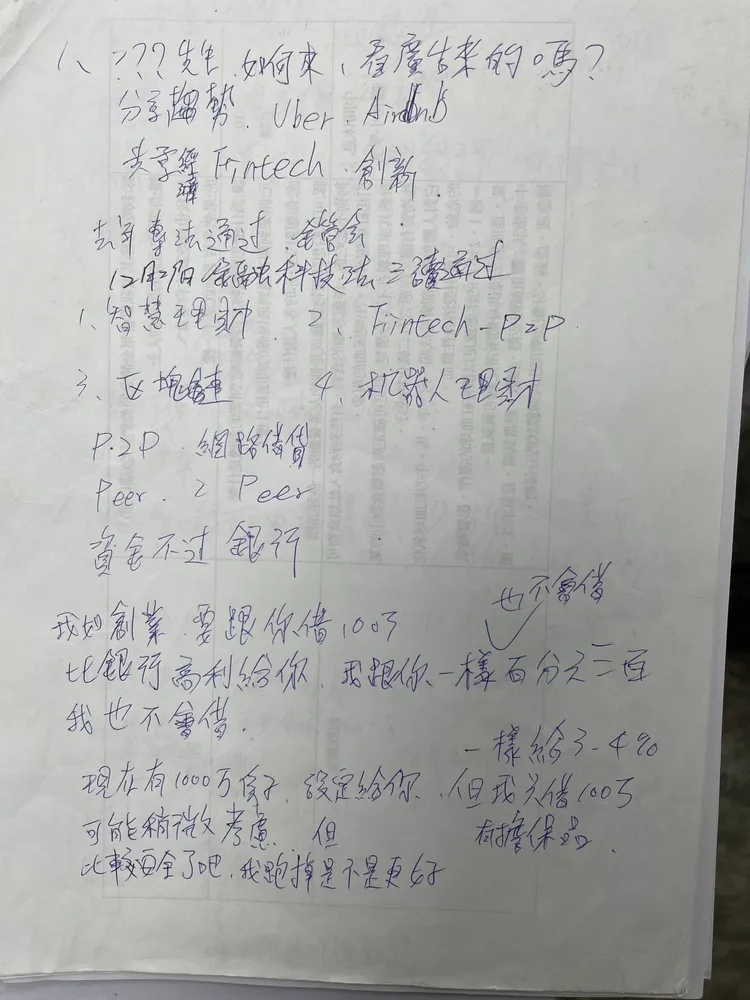 1、???先生 如何來、看廣告來的嗎?
分享趨勢. Uber. Airbnb
共享經濟 Fintech. 創新
去年專法通过. 金管会
12月29日金融科技法三讀通过
1、智慧理財. 2、Fintech-P2P.
3、区塊鏈 4、机器人理財
P.2P. 網路借貸
Peer. 2 Peer
資金不过銀行
也不會借
我如創業. 要跟你借100万
比銀行高利給你. 我跟你一樣百分之三百
我也不會借.
一樣給3-4%
現在有1000万房子. 設定給你. 但我只借100万
可能稍微考慮. 但 有擔保品.
比較安全了吧. 我跑掉是不是更好